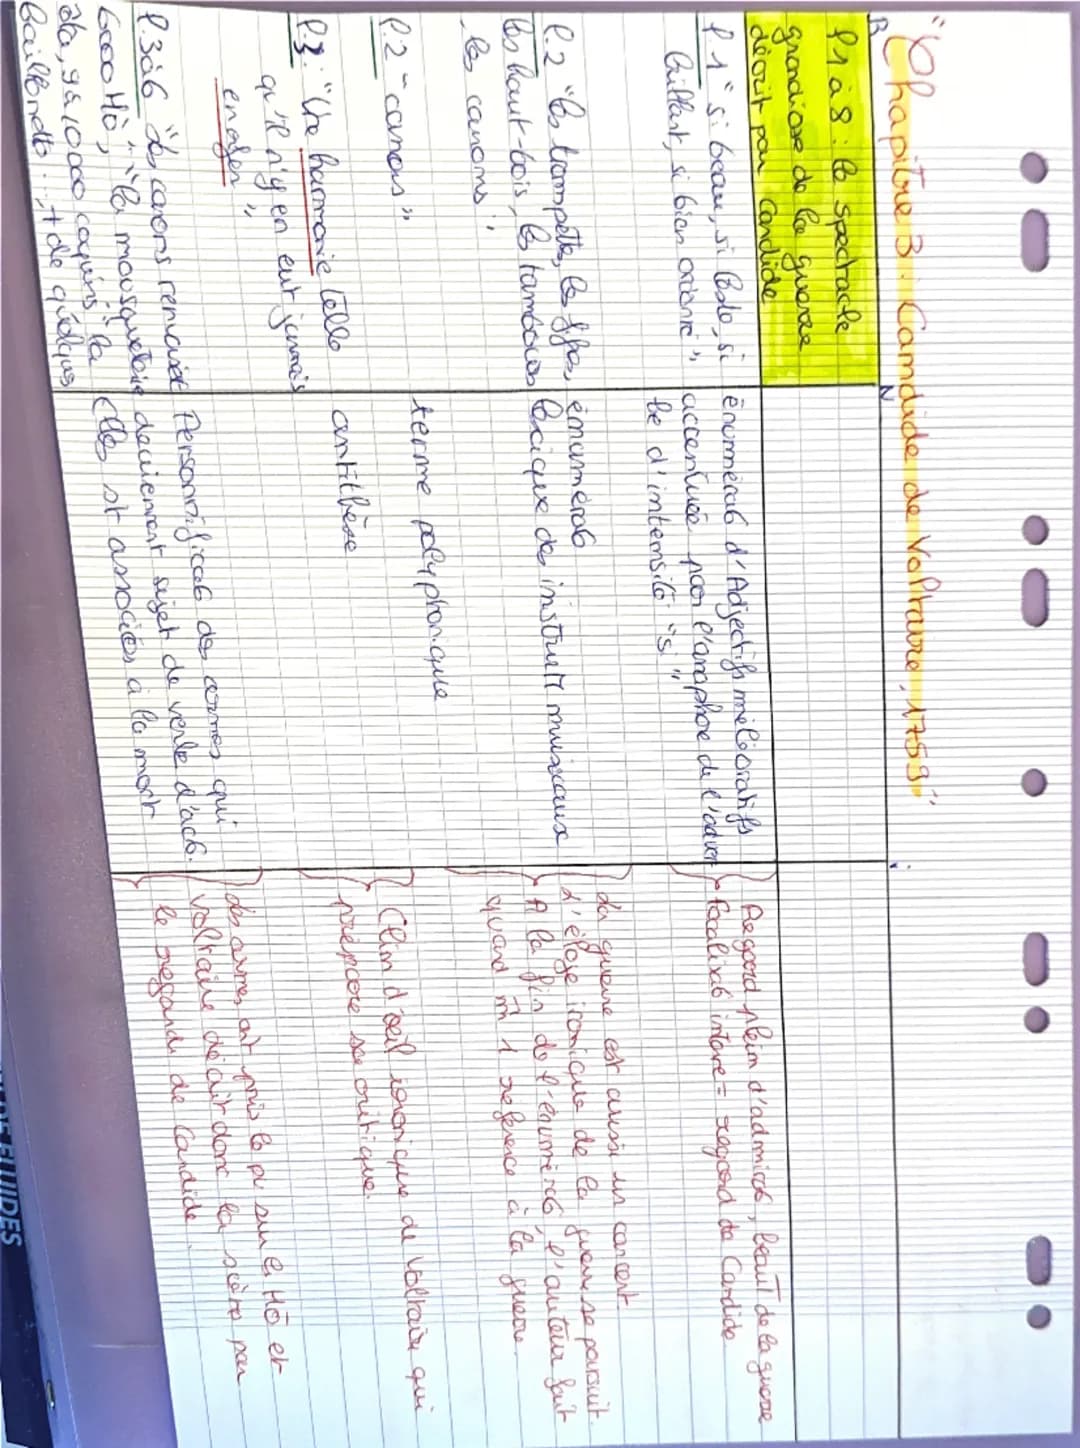 "Chapitre 3 : Candide de Voltaire, 1759"
l.1 à 8 : le spectacle
grandiose de la guerre
décrit par Candide
l.1 "si beau, si leste, si
brillant, si bien ordonné"
énumérat° d'Adjectifs mélioratifs
accentuée par l'anaphore de l'adver
be d'intensité "si"
Regard plein d'admirat°, beauté de la guerre
focalisat° interne = regard de Candide
l.2 "les trompettes, les fifres,
les haut-bois, les tambours
les canons"
énumérat°
lexique des instrumts musicaux
La guerre est aussi un concert
L'éloge ironique de la guerre se poursuit.
A la fin de l'énumérat°, l'auteur fait
quand m̂ 1 référence à la guerre.
l.2 "canons"
terme polyphonique
l.3 : "Une harmonie telle
qu'il n'y en eut jamais
enfer"
antithèse
Clin d'oeil ironique de Voltaire qui
prépare sa critique.
l.3 à 6 "les canons renversèt
6000 Hô", "la mousqueterie
ôta, 9 à 10000 coquins" "la
baïonnette... + de quelques
Personnificat° des armes qui
deviennent sujet de verbe d'act°.
Elles st associées à la mort
les armes ont pris le pvr sur les Hô et
Voltaire décrit donc la scène par
le regard de Candide.
FLUIDES